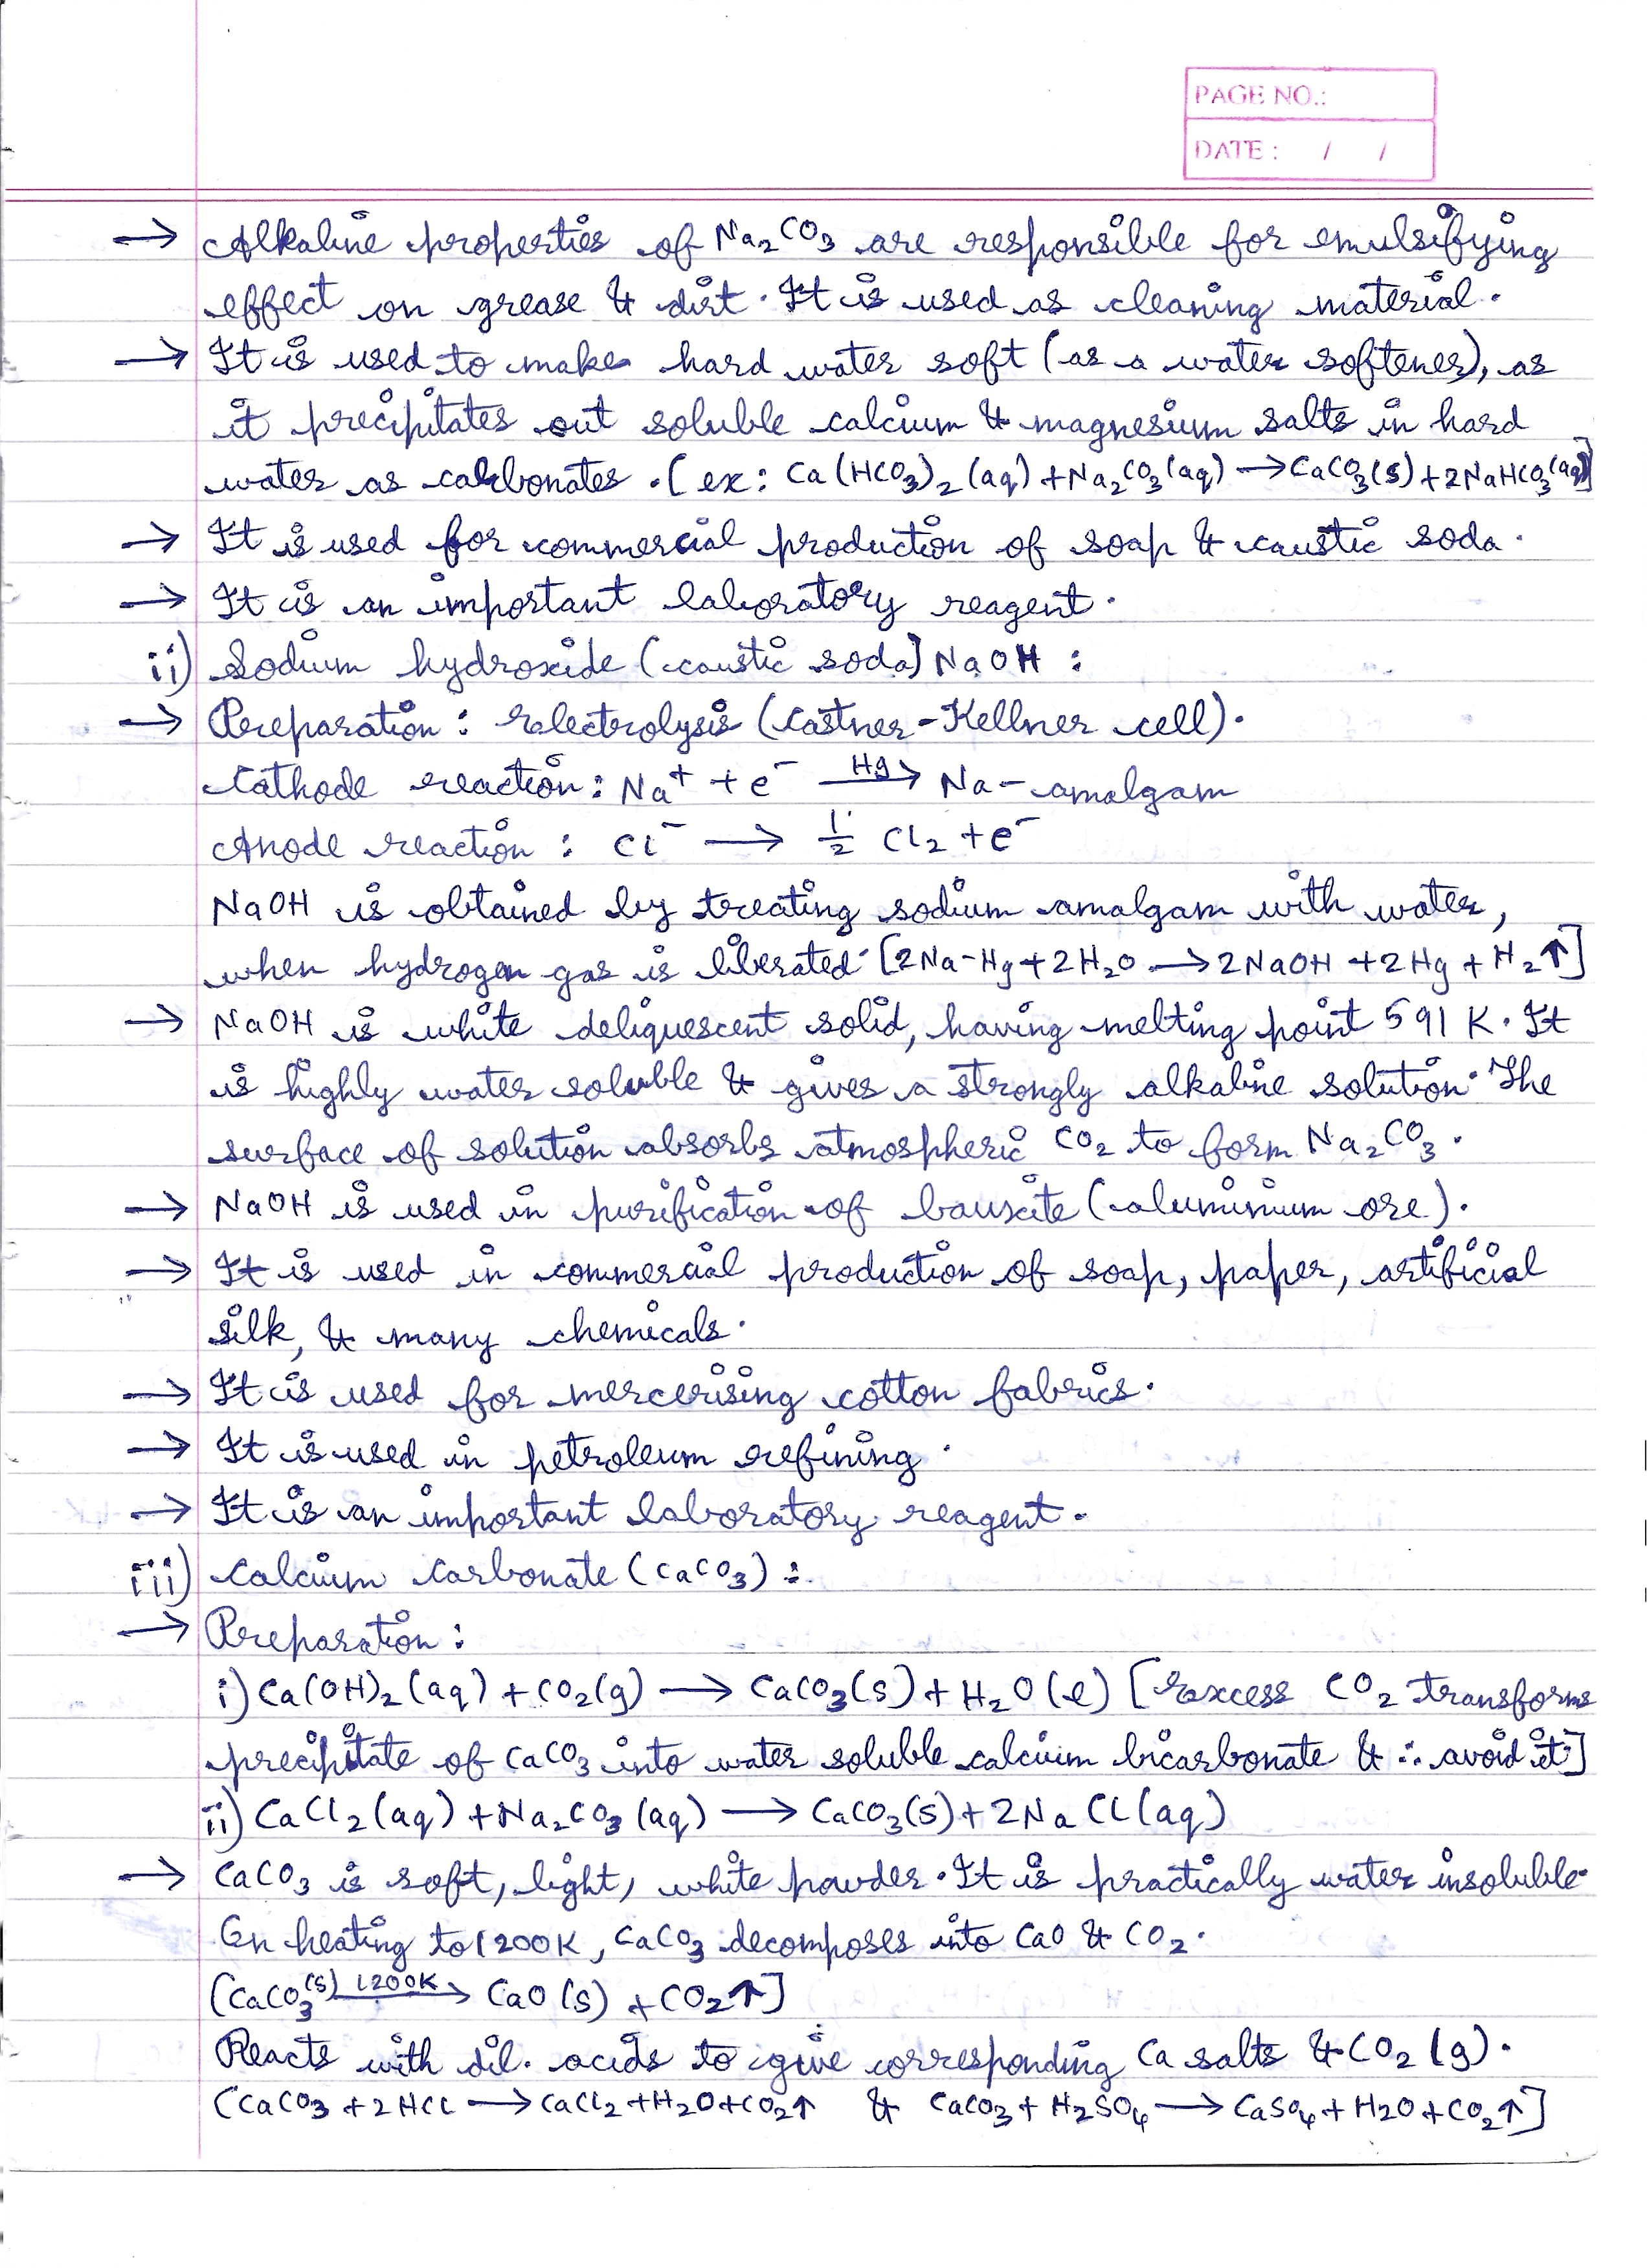 PAGE NO.:
DATE : / /
→ Alkaline properties of Na₂CO₃ are responsible for emulsifying
effect on grease & dirt. It is used as cleaning material.
→ It is used to make hard water soft (as a water softener), as
it precipitates out soluble calcium & magnesium salts in hard
water as carbonates. [ex: Ca(HCO₃)₂(aq) + Na₂CO₃(aq) → CaCO₃(s) + 2NaHCO₃(aq)]
→ It is used for commercial production of soap & caustic soda.
→ It is an important laboratory reagent.
ii) Sodium hydroxide (caustic soda] NaOH :
→ Preparation : Electrolysis (Castner-Kellner cell).
Cathode reaction : Na⁺ + e⁻ —Hg→ Na-amalgam
Anode reaction : Cl⁻ → 1/2 Cl₂ + e⁻
NaOH is obtained by treating sodium amalgam with water,
when hydrogen gas is liberated. [2Na-Hg + 2H₂O → 2NaOH + 2Hg + H₂↑]
→ NaOH is white deliquescent solid, having melting point 591 K. It
is highly water soluble & gives a strongly alkaline solution. The
surface of solution absorbs atmospheric CO₂ to form Na₂CO₃.
→ NaOH is used in purification of bauxite (aluminium ore).
→ It is used in commercial production of soap, paper, artificial
silk, & many chemicals.
→ It is used for mercerising cotton fabrics.
→ It is used in petroleum refining.
→ It is an important laboratory reagent.
iii) Calcium Carbonate (CaCO₃) :
→ Preparation :
i) Ca(OH)₂(aq) + CO₂(g) → CaCO₃(s) + H₂O(l) [Excess CO₂ transforms
precipitate of CaCO₃ into water soluble calcium bicarbonate & ∴ avoid it]
ii) CaCl₂(aq) + Na₂CO₃(aq) → CaCO₃(s) + 2NaCl(aq)
→ CaCO₃ is soft, light, white powder. It is practically water insoluble.
On heating to 1200K, CaCO₃ decomposes into CaO & CO₂.
[CaCO₃(s) —1200K→ CaO(s) + CO₂↑]
Reacts with dil. acids to give corresponding Ca salts & CO₂(g).
[CaCO₃ + 2HCl → CaCl₂ + H₂O + CO₂↑ & CaCO₃ + H₂SO₄ → CaSO₄ + H2O + CO₂↑]